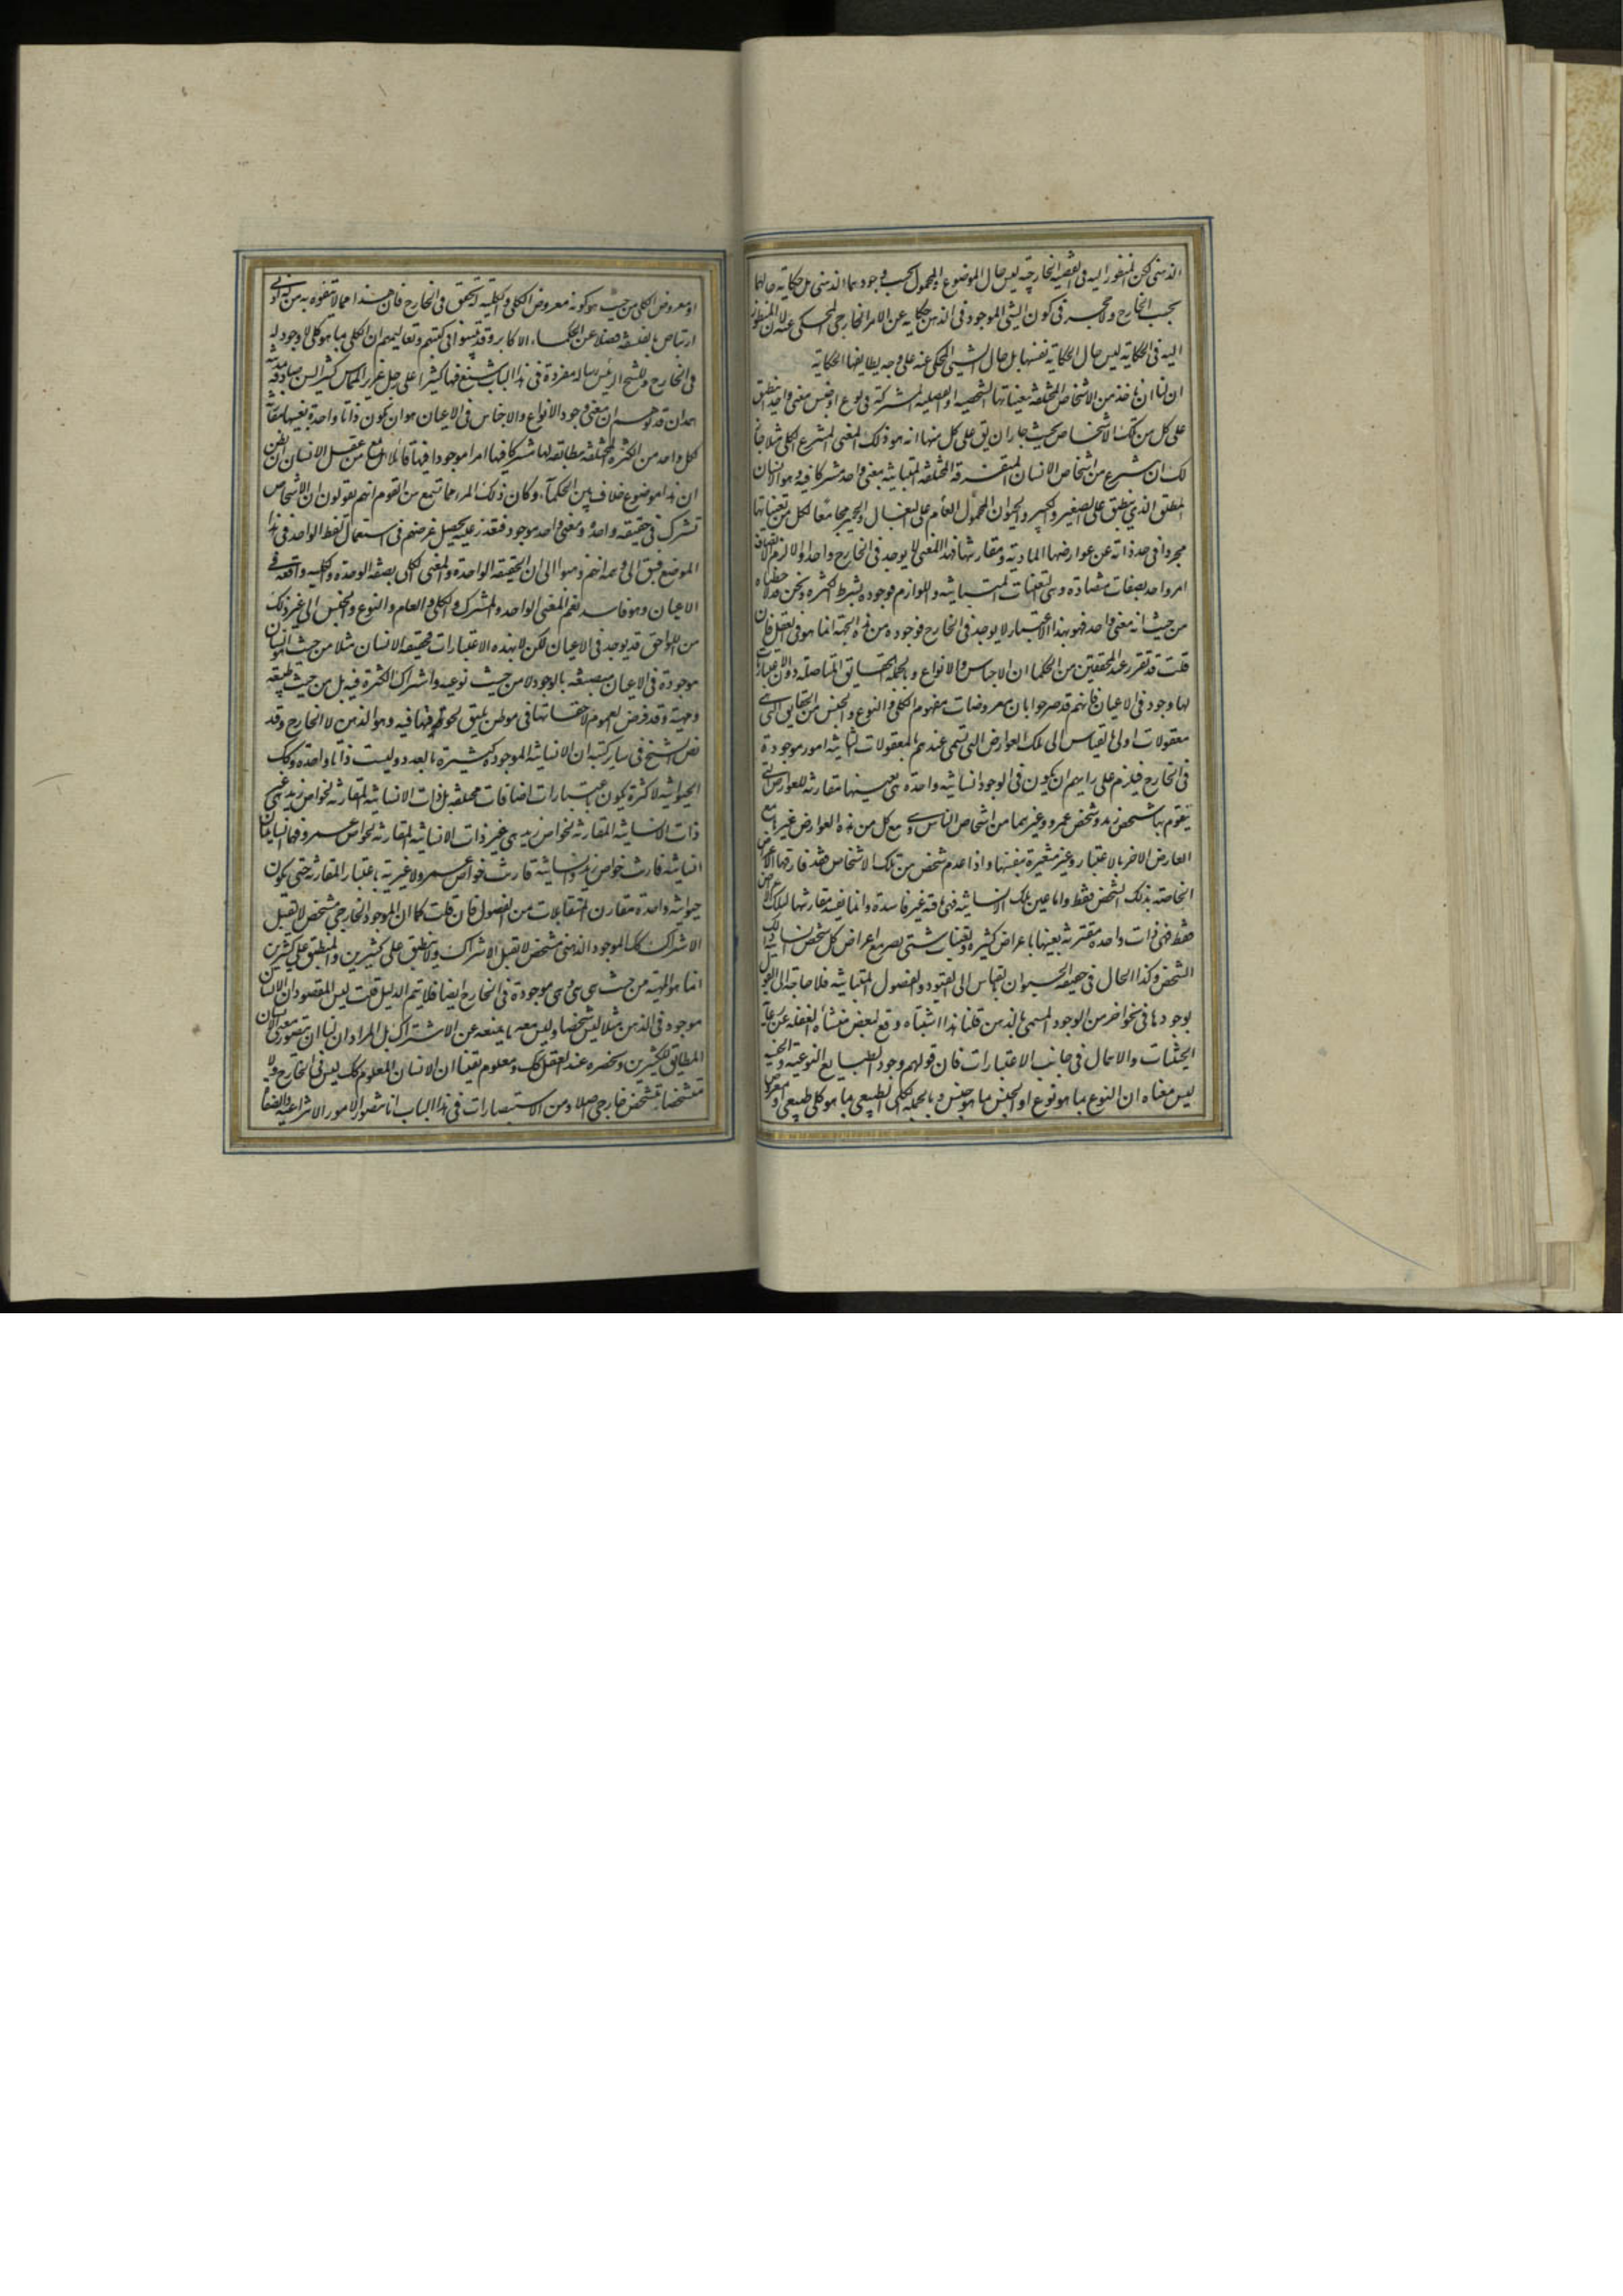 الذهنى لكن المنظور اليه فى القضية الخارجية ليس حال الموضوع والمحمول بحسب وجودهما الذهنى بل حكاية حالهما
بحسب الخارج ولا حجر فى كون الشئ الموجود فى الذهن حكاية عن الامر الخارجى المحكى عنه لان المنظور
اليه فى الحكاية ليس حال الحكاية نفسها بل حال الشئ المحكى عنه على وجه يطابقها الحكاية
ان لنا ان ناخذ من الاشخاص المختلفة بتعيناتها الشخصية او الفصلية المشتركة فى نوع او جنس معنى واحدا ينطبق
على كل من تلك الاشخاص بحيث جاز ان يق على كل منها انه هو ذلك المعنى المنتزع الكلى مثلا جاز
لك ان تنتزع من اشخاص الانسان المتفرقة المختلفة المتباينة معنى واحدا مشتركا فيه وهو الانسان
المطلق الذى ينطبق على الصغير والكبير والحيوان المحمول العام على البغال والحمير مجامعا لكل من تعيناتها
مجردا فى حد ذاته عن عوارضها المادية ومقارناتها فهذا المعنى لا يوجد فى الخارج واحدا والا لزم اتصاف
امر واحد بصفات متضادة وهى التعينات المتباينة واللوازم فوجوده بشرط الكثرة ونحن قد لاحظناه
من حيث انه معنى واحد فهو بهذا الاعتبار لا يوجد فى الخارج فوجوده من هذه الجهة انما هو فى العقل فان
قلت قد تقرر عند المحققين من الحكما ان الاجناس والانواع وبالجملة الحقايق المتاصلة دون الاعتبارات
لها وجود فى الاعيان فانهم قد صرحوا بان معروضات مفهوم الكلى والنوع والجنس من الحقايق التى هى
معقولات اولى بالقياس الى تلك العوارض التى تسمى عندهم بالمعقولات الثانية امور موجودة
فى الخارج فيلزم على رايهم ان يكون فى الوجود انسانية واحدة هى بعينها مقارنة للعوارض التى
يتقوم بها شخص زيد وشخص عمرو وغيرهما من اشخاص الناس وهى مع كل من هذه العوارض غيرها مع
العارض الاخر بالاعتبار وغير متغيرة بنفسها واذا عدم شخص من تلك الاشخاص فقد فارقها الاعراض
الخاصة بذلك الشخص فقط واما عين تلك الانسانية فهى باقية غير فاسدة وانما يفسد مقارنتها لتلك الاعراض
فقط فهى ذات واحدة مقترنة بعينها باعراض كثيرة وتعينات شتى يصير مع اعراض كل شخص انسان ذلك
الشخص وكذا الحال فى حصة الحيوان بالقياس الى القيود والفصول المتباينة فلا حاجة الى القول
بوجودها فى نحو اخر من الوجود المسمى بالذهن قلنا هذا اشتباه وقع لبعض منشأه الغفلة عن رعاية
الحيثيات والاهمال فى جانب الاعتبارات فان قولهم وجود الطبايع النوعية والجنسية
ليس معناه ان النوع بما هو نوع او الجنس بما هو جنس وبالجملة الكلى الطبيعى بما هو كلى طبيعى او معروض
او معروض الكلى من حيث هو كونه معروض الكلى والكلية له تحقق فى الخارج فان هذا مما لا يتفوه به من له ادنى
ارتياض بالفلسفة فضلا عن الحكماء الاكابر وقد بينوا فى كتبهم وتعاليمهم ان الكلى بما هو كلى لا وجود له
فى الخارج وللشيخ الرئيس رسالة مفردة فى هذا الباب شنع فيها كثيرا على رجل غزير المحاسن كثير السن صادفه بمدينة
همدان قد توهم ان معنى وجود الانواع والاجناس فى الاعيان هو ان يكون ذاتا واحدة بعينها مقارنة
لكل واحد من الكثرة المختلفة مطابقة لها مشتركا فيها امرا موجودا فيها قائلا هل بلغ من عقل الانسان ان يظن
ان هذا موضع خلاف بين الحكمآء وكان ذلك المرء مما تسمع من القوم انهم يقولون ان الاشخاص
تشترك فى حقيقة واحدة ومعنى واحد موجود فتعذر عليه تحصيل غرضهم فى استعمال لفظ الواحد فى هذا
الموضع فسبق الى وهمه انهم ذهبوا الى ان الحقيقة الواحدة والمعنى الكلى بصفة الوحدة والكلية واقعة فى
الاعيان وهو فاسد نعم المعنى الواحد والمشترك والكلى والعام والنوع والجنس الى غير ذلك
من اللواحق قد يوجد فى الاعيان لكن لا بهذه الاعتبارات فحقيقة الانسان مثلا من حيث هو انسان
موجودة فى الاعيان منصبغة بالوجود لا من حيث نوعيه واشتراك الكثرة فيه بل من حيث طبيعته
وحيثه وقد فرض العموم لاحقا بها فى موطن يليق لحوقه بها فيه وهو الذهن لا الخارج وقد
نص الشيخ فى ساير كتبه ان الانسانية الموجودة كثيرة بالعدد وليست ذاتا واحدة وكك
الحيوانية لا كثرة يكون باعتبارات اضافات مختلفة بل ذات الانسانية المقارنة لخواص زيد هى غير
ذات الانسانية المقارنة لخواص زيد هى غير ذات الانسانية المقارنة لخواص عمرو فهما انسانيتان
انسانية قارنت خواص زيد وانسانية قارنت خواص عمرو لا غيرية باعتبار المقارنة حتى يكون
حيوانية واحدة مقارن المتقابلات من الفصول فان قلت كما ان الموجود الخارجى متشخص لا يقبل
الاشتراك كك الموجود الذهنى متشخص لا يقبل الاشتراك ولا ينطبق على كثيرين والمنطبق على كثيرين
انما هو المهية من حيث هى هى وهى موجودة فى الخارج ايضا فلا يتم الدليل قلت ليس المقصود ان الانسان
موجود فى الذهن مثلا ليس شخصا وليس معه ما يمنعه عن الاشتراك بل المراد ان لنا ان نتصور معنى الانسان
المطابق للكثيرين ونحضره عند العقل كك ومعلوم يقينا ان الانسان المعلوم كك ليس فى الخارج ولا
متشخصا بتشخص خارجى اصلا ومن الاستبصارات فى هذا الباب انا نتصور الامور الانتزاعية والصفات